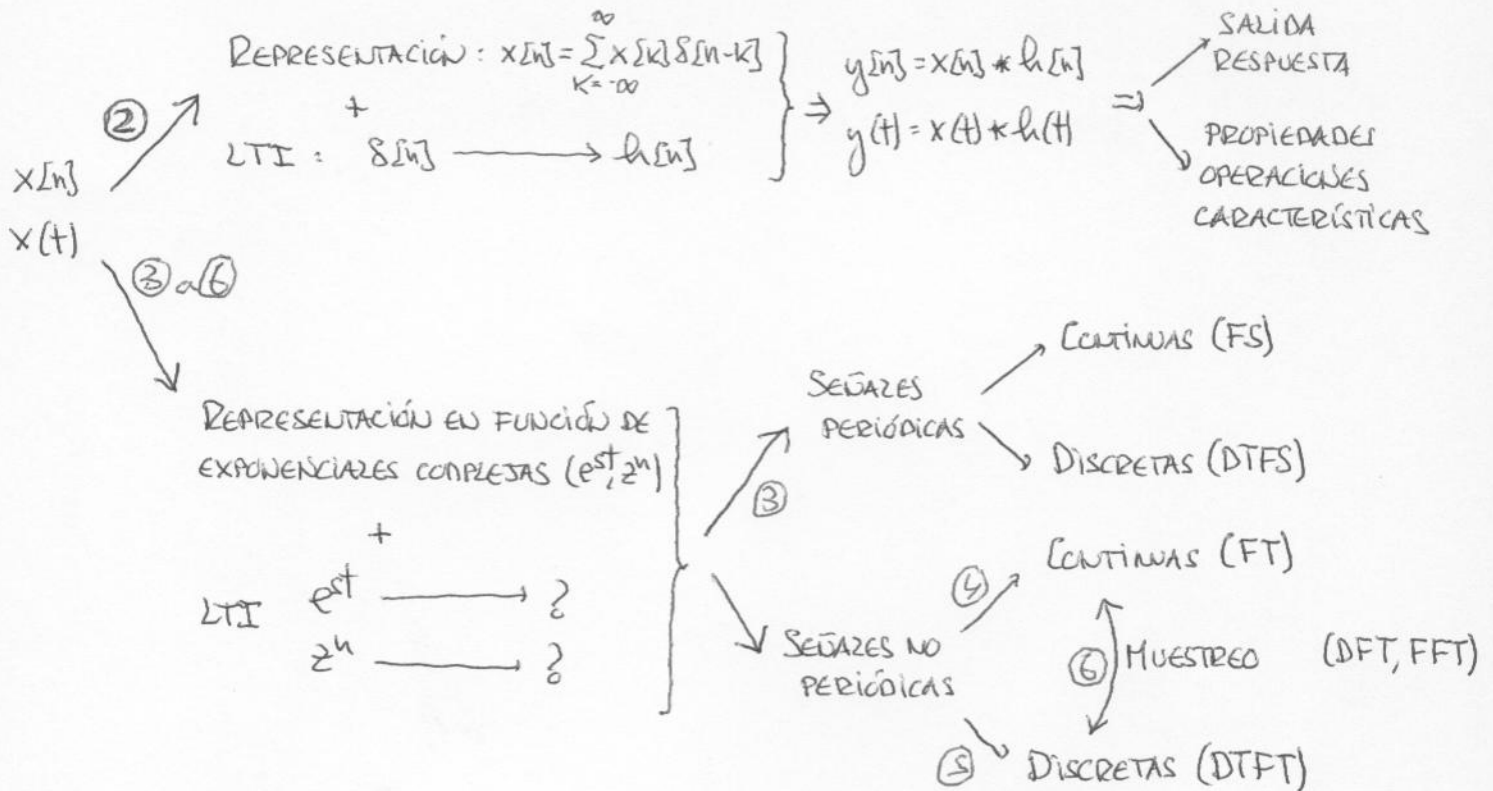 ②
REPRESENTACIÓN: x[n] = ∑ x[k] δ[n-k]
∞
K=-∞
+
LTI: δ[n] ⟶ h[n]
⇒ y[n] = x[n] * h[n]
y(t) = x(t) * h(t)
⇒ SALIDA
RESPUESTA
PROPIEDADES
OPERACIONES
CARACTERÍSTICAS
x[n]
x(t)
③ a ⑥
REPRESENTACIÓN EN FUNCIÓN DE
EXPONENCIALES COMPLEJAS (e^st, z^n)
+
LTI e^st ⟶ ?
z^n ⟶ ?
③
SEÑALES
PERIÓDICAS
CONTINUAS (FS)
DISCRETAS (DTFS)
SEÑALES NO
PERIÓDICAS
④
CONTINUAS (FT)
⑥ MUESTREO (DFT, FFT)
⑤ DISCRETAS (DTFT)